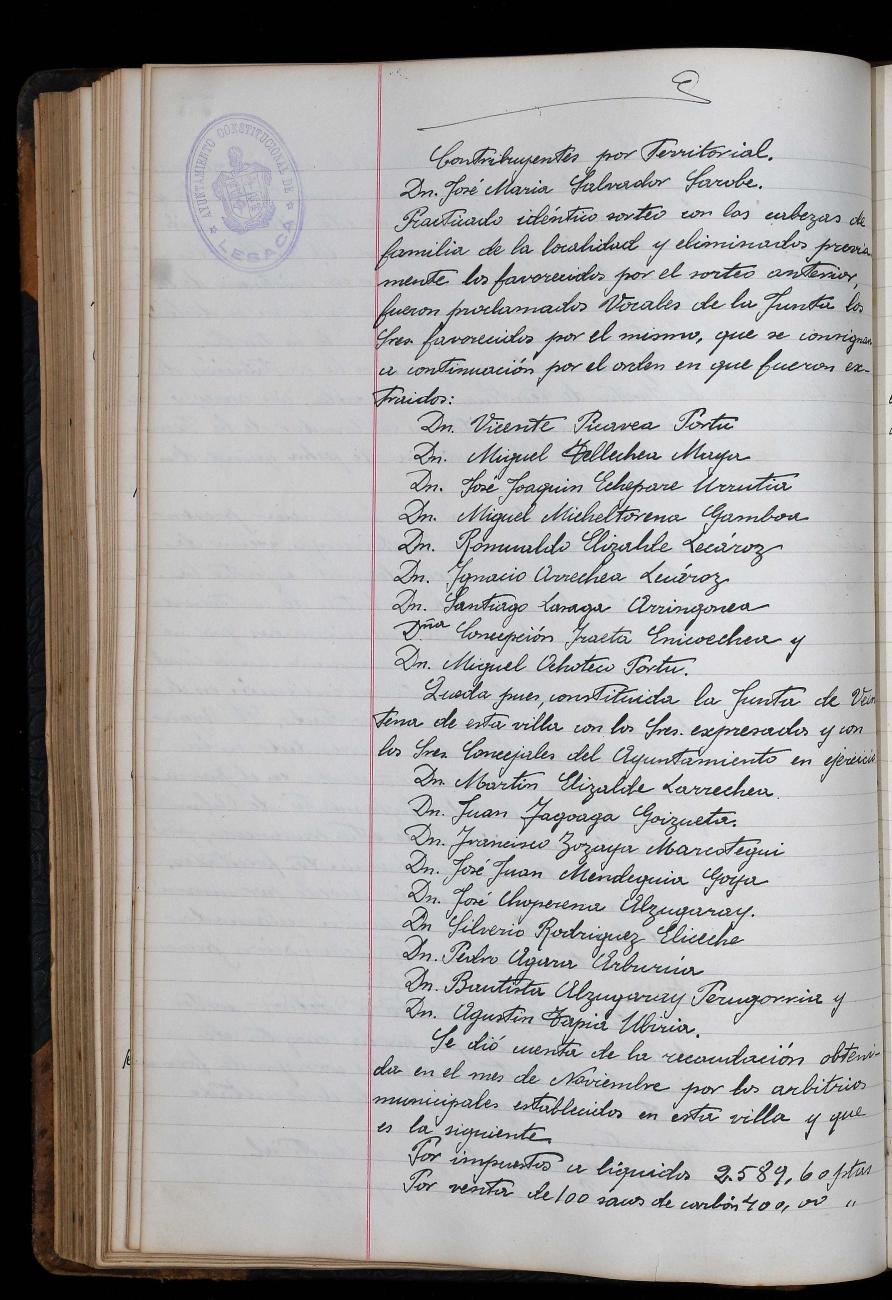 AYUNTAMIENTO CONSTITUCIONAL DE
LESACA
Contribuyentes por Territorial.
Dn. José Maria Salvador Sarobe.
Practicado idéntico sorteo con los cabezas de
familia de la localidad y eliminados previa
mente los favorecidos por el sorteo anterior,
fueron proclamados Vocales de la Junta los
Sres. favorecidos por el mismo, que se consignan
a continuación por el orden en que fueron ex-
traidos:
Dn. Vicente Picavea Portu
Dn. Miguel Tellechea Maya
Dn. José Joaquin Echepare Urrutia
Dn. Miguel Micheltorena Gamboa
Dn. Romualdo Elizalde Lecároz
Dn. Ignacio Arrechea Lecároz
Dn. Santiago Laraga Arringonea
Dña Concepción Iraeta Enicoechea y
Dn. Miguel Ochoteco Portu.
Queda pues, constituida la Junta de Vein
tena de esta villa con los Sres. expresados y con
los Sres. Concejales del Ayuntamiento en ejercicio
Dn. Martin Elizalde Larrechea.
Dn. Juan Jagoaga Goizueta.
Dn. Francisco Zozaya Marcotegui
Dn. José Juan Mendeguia Goya
Dn. José Choperena Alzugaray.
Dn Silverio Rodriguez Eliceche
Dn. Pedro Agara Arburúa
Dn. Bautista Alzugaray Perugorria y
Dn. Agustin Tapia Ubiria.
Se dió cuenta de la recaudación obteni-
da en el mes de Noviembre por los arbitrios
municipales establecidos en esta villa y que
es la siguiente
Por impuestos a liquidos 2.589,60 ptas
Por venta de 100 sacos de carbón 400,00 "